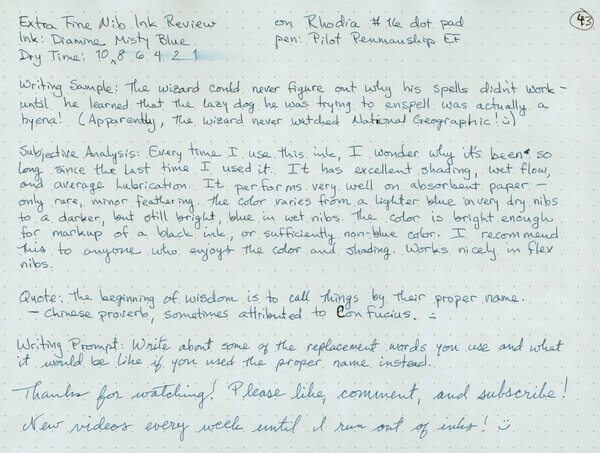 Extra Fine Nib Ink Review on Rhodia #16 dot pad 43
Ink: Diamine Misty Blue pen: Pilot Penmanship EF
Dry Time: 10 8 6 4 2 1
Writing Sample: The wizard could never figure out why his spells didn't work -
until he learned that the lazy dog he was trying to enspell was actually a
hyena! (Apparently, the wizard never watched National Geographic! :)
Subjective Analysis: Every time I use this ink, I wonder why it's been so
long since the last time I used it. It has excellent shading, wet flow,
and average lubrication. It performs very well on absorbent paper -
only rare, minor feathering. The color varies from a lighter blue in very dry nibs
to a darker, but still bright, blue in wet nibs. The color is bright enough
for markup of a black ink, or sufficiently non-blue color. I recommend
this to anyone who enjoys the color and shading. Works nicely in flex
nibs.
Quote: The beginning of wisdom is to call things by their proper name.
- Chinese proverb, sometimes attributed to Confucius. :)
Writing Prompt: Write about some of the replacement words you use and what
it would be like if you used the proper name instead.
Thanks for watching! Please like, comment, and subscribe!
New videos every week until I run out of inks! :)